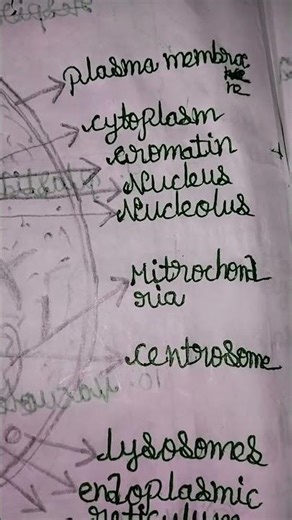 plasma membrae
ne
cytoplasm
cromatin
Nucleus
Nucleolus
Mitrochond
ria
centrosome
lysosomes
endoplasmic
reticulum